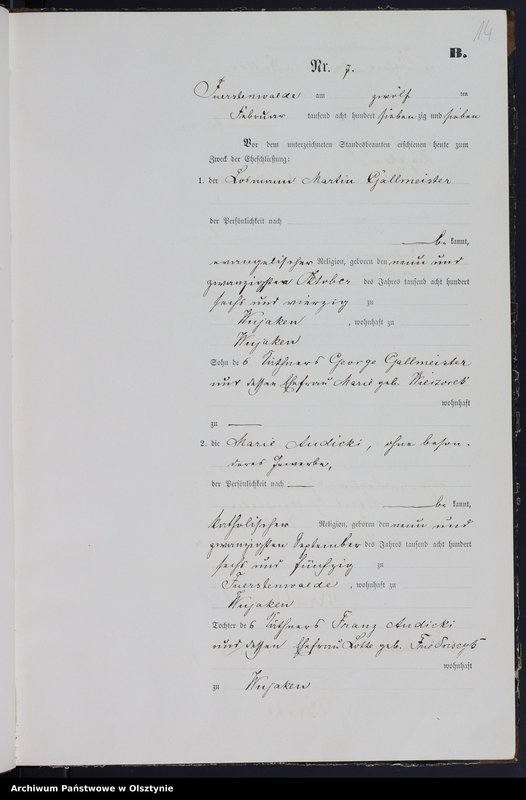 14
B.
Nr. 7.
Fuerstenwalde am zwölf ten
Februar tausend acht hundert sieben zig und sieben
Vor dem unterzeichneten Standesbeamten erschienen heute zum
Zweck der Eheschließung:
1. der Losmann Martin Gallmeister
der Persönlichkeit nach
be kannt,
evangelischer Religion, geboren den neun und
zwanzigsten Oktober des Jahres tausend acht hundert
sechs und vierzig zu
Wujaken , wohnhaft zu
Wujaken
Sohn des Käthners George Gallmeister
und dessen Ehefrau Marie geb.
wohnhaft
zu
2. die Marie Andicki, ohne beson-
deres Gewerbe,
der Persönlichkeit nach
be kannt,
katholischer Religion, geboren den neun und
zwanzigsten September des Jahres tausend acht hundert
sechs und fünfzig zu
Fuerstenwalde , wohnhaft zu
Wujaken
Tochter des Käthners Franz Andicki
und dessen Ehefrau Lotte geb.
wohnhaft
zu Wujaken
Archiwum Państwowe w Olsztynie